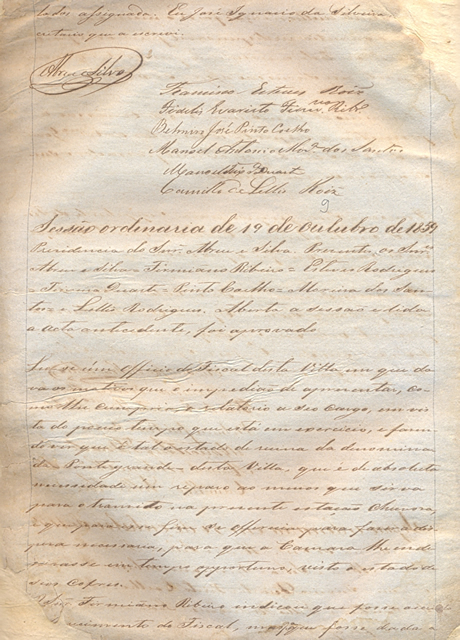 lados assignada. Eu José Ignacio da Silveira
cretario que a escrevi.
Abreu e Silva
Francisco Esteves Roiz
Fidelis Evaristo Ferr.ª Rib.º
José Pinto Coelho
Manoel Antonio Mor.ª dos Santos
Duart
Camillo de Lellis Roiz
9
Sessão ordinaria de 19 de Outubro de 1859
Presidencia do Snr. Abreu e Silva. Presente os Snr.es
Abreu e Silva = Firmiano Ribeiro = Esteves Rodrigues
= Duarte = Pinto Coelho = Moreira dos San
tos = e Lellis Rodrigues. Aberta a sessão e lida
a acta antecidente, foi aprovada
Leu-se um Officio do Fiscal desta Villa em que da
va os motivos que o impedião de apresentar, co
mo lhe cumpria o relatorio a seo Cargo, em vis
ta do pouco tempo que está em exercicio, e
que é tal o estado de ruina da denomina
da Ponte grande desta Villa, que é de absoluta
necessidade um reparo ao menos que sirva
para o transito na presente estação Chuvosa
e que para esse fim se offerecia para fazer a des
peza necessaria, para que a Camara lhe inde
nisasse em tempo opportuno, visto o estado de
seos Cofres.
Firmiano Ribeiro indicou que
do Fiscal, fosse dada a